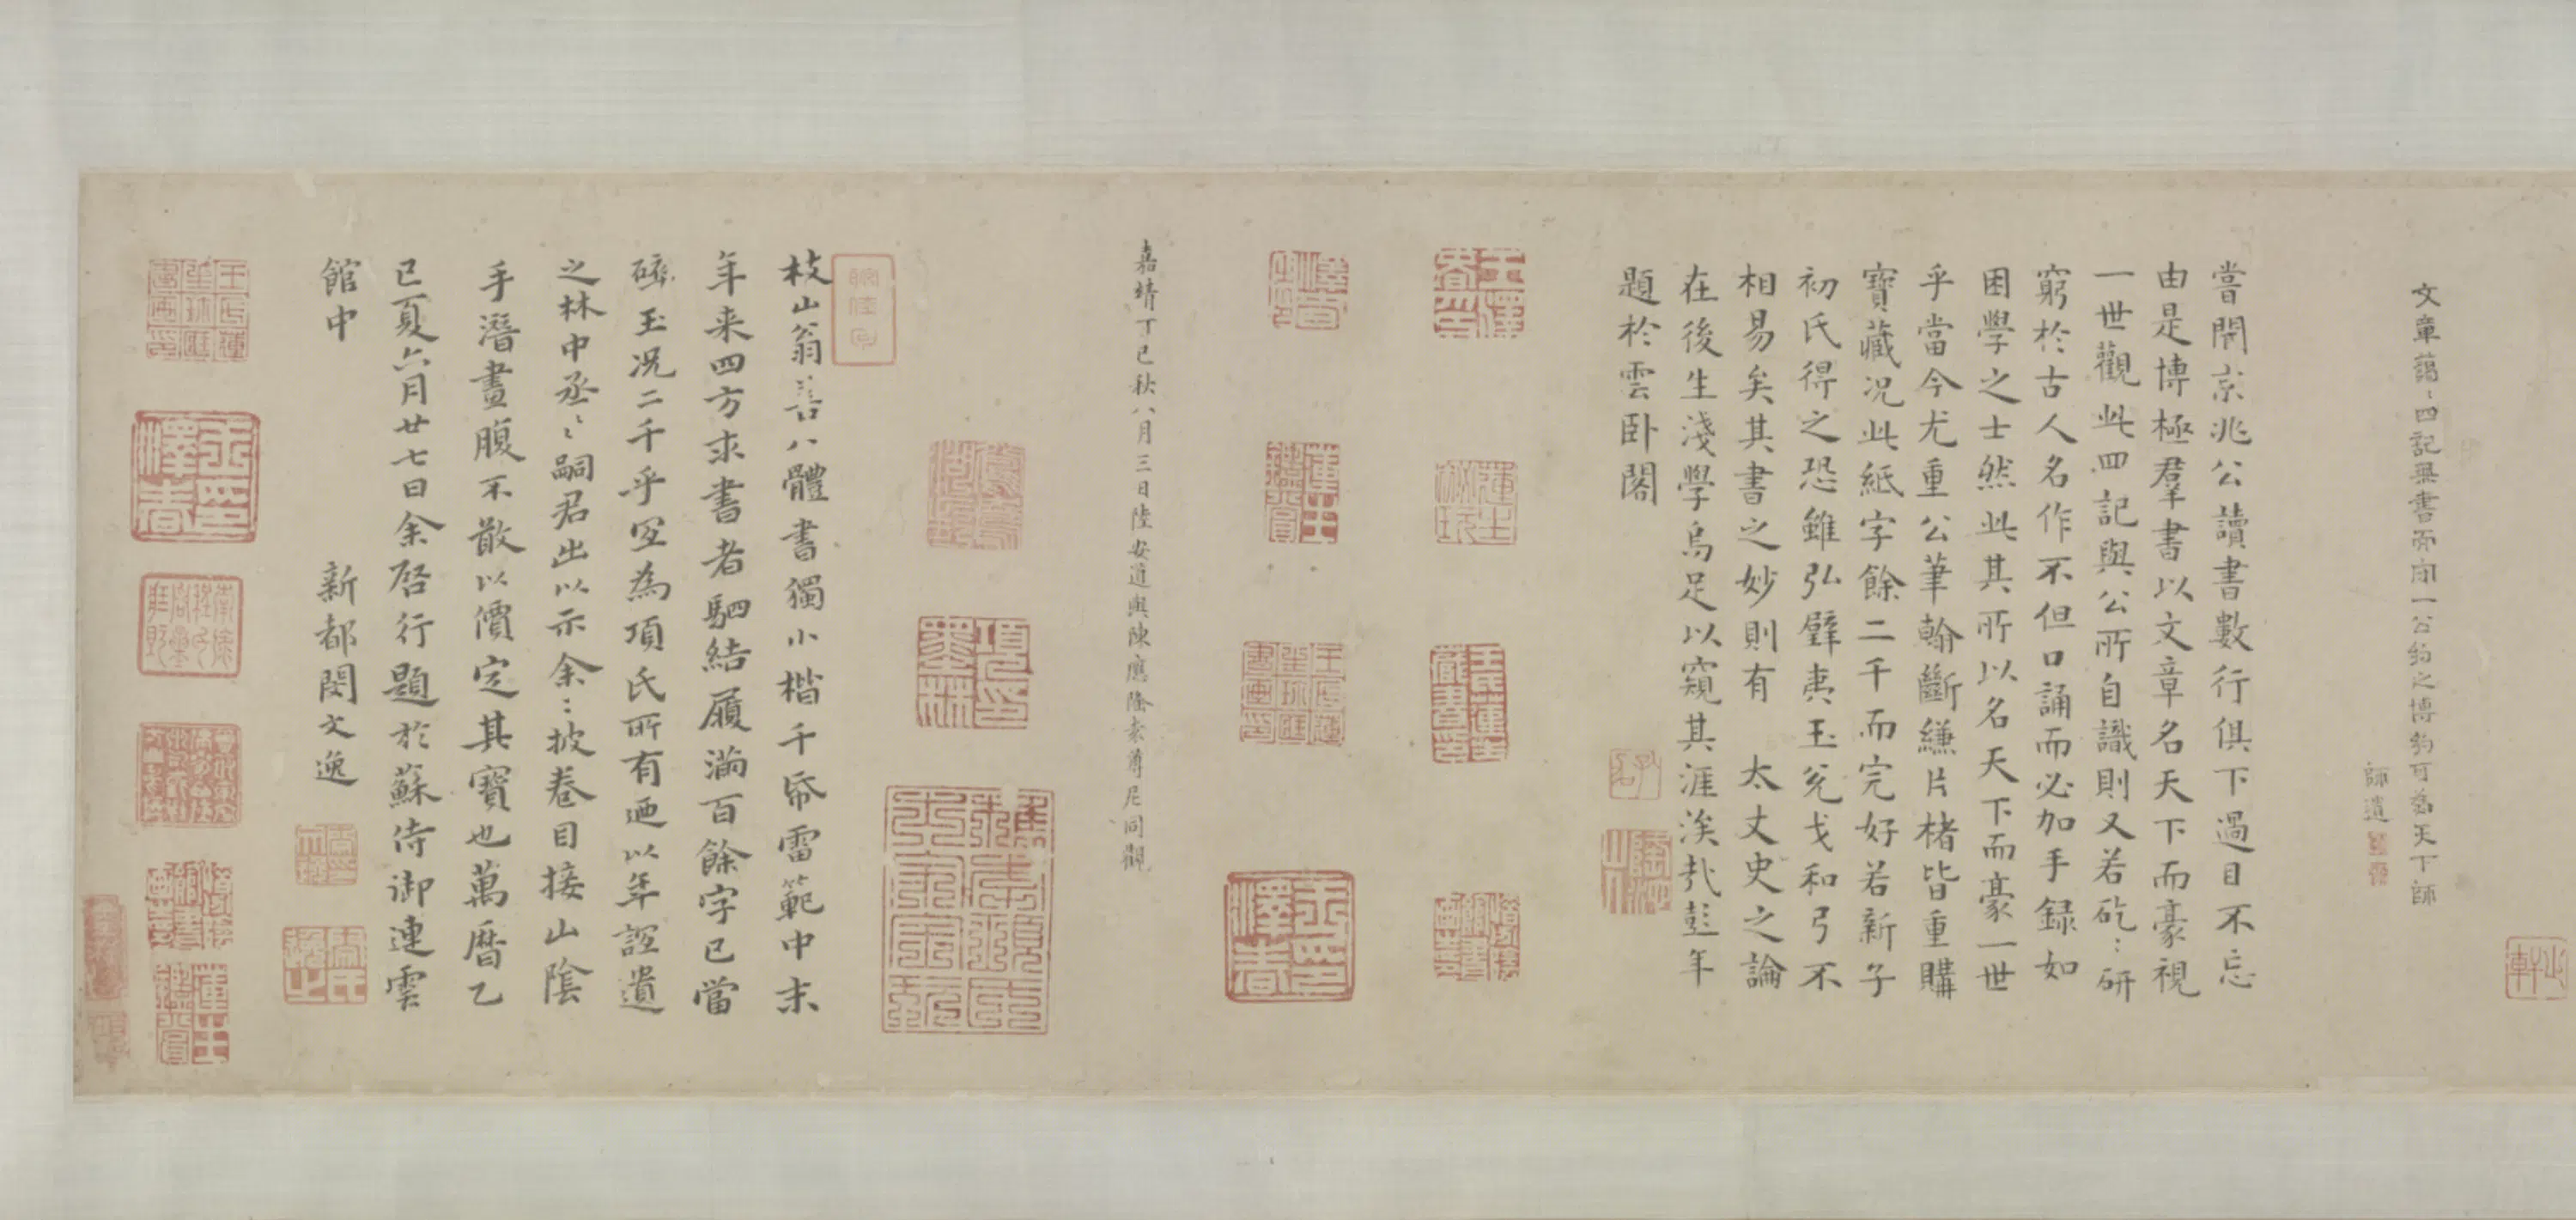 文章藹〻四記與書而間一公約之博約可為天下師
師道
嘗聞京兆公讀書數行俱下過目不忘
由是博極羣書以文章名天下而豪視
一世觀此四記與公所自識則又若矻〻研
窮於古人名作不但口誦而必加手録如
困學之士然此其所以名天下而豪一世
乎當今尤重公筆翰斷縑片楮皆重購
寶藏况此紙字餘二千而完好若新子
初氏得之恐雖弘璧夷玉兊戈和弓不
相易矣其書之妙則有 太丈史之論
在後生淺學烏足以窺其涯涘㢤彭年
題於雲卧閣
嘉靖丁巳秋八月三日陸安道與陳應隆袁尊尼同觀
枝山翁善八體書獨小楷千帋雷範中末
年来四方求書者駟結履滿百餘字已當
雙玉况二千乎宐為項氏所有迺以年誼遺
之林中丞〻嗣君出以示余〻披卷目接山陰
手潛畫腹不敢以價定其寳也萬曆乙
巳夏六月廿七日余啓行題於蘇侍御連雲
館中
新都閔文逸